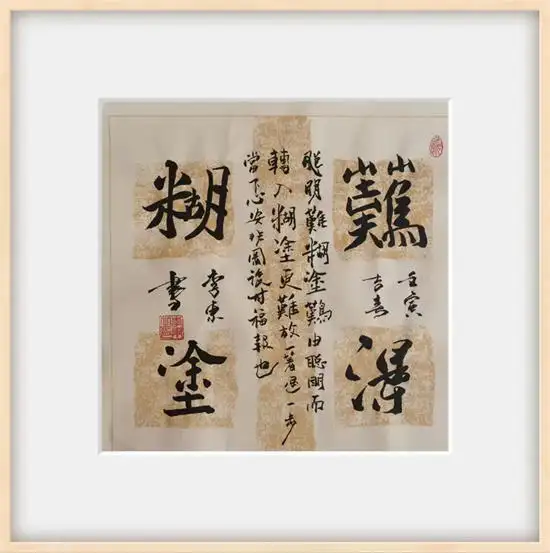 難得
壬寅
吉
聰明難糊塗難由聰明而
轉入糊塗更難放一著退一步
當下心安非圖後时福報也
糊塗
李東
書